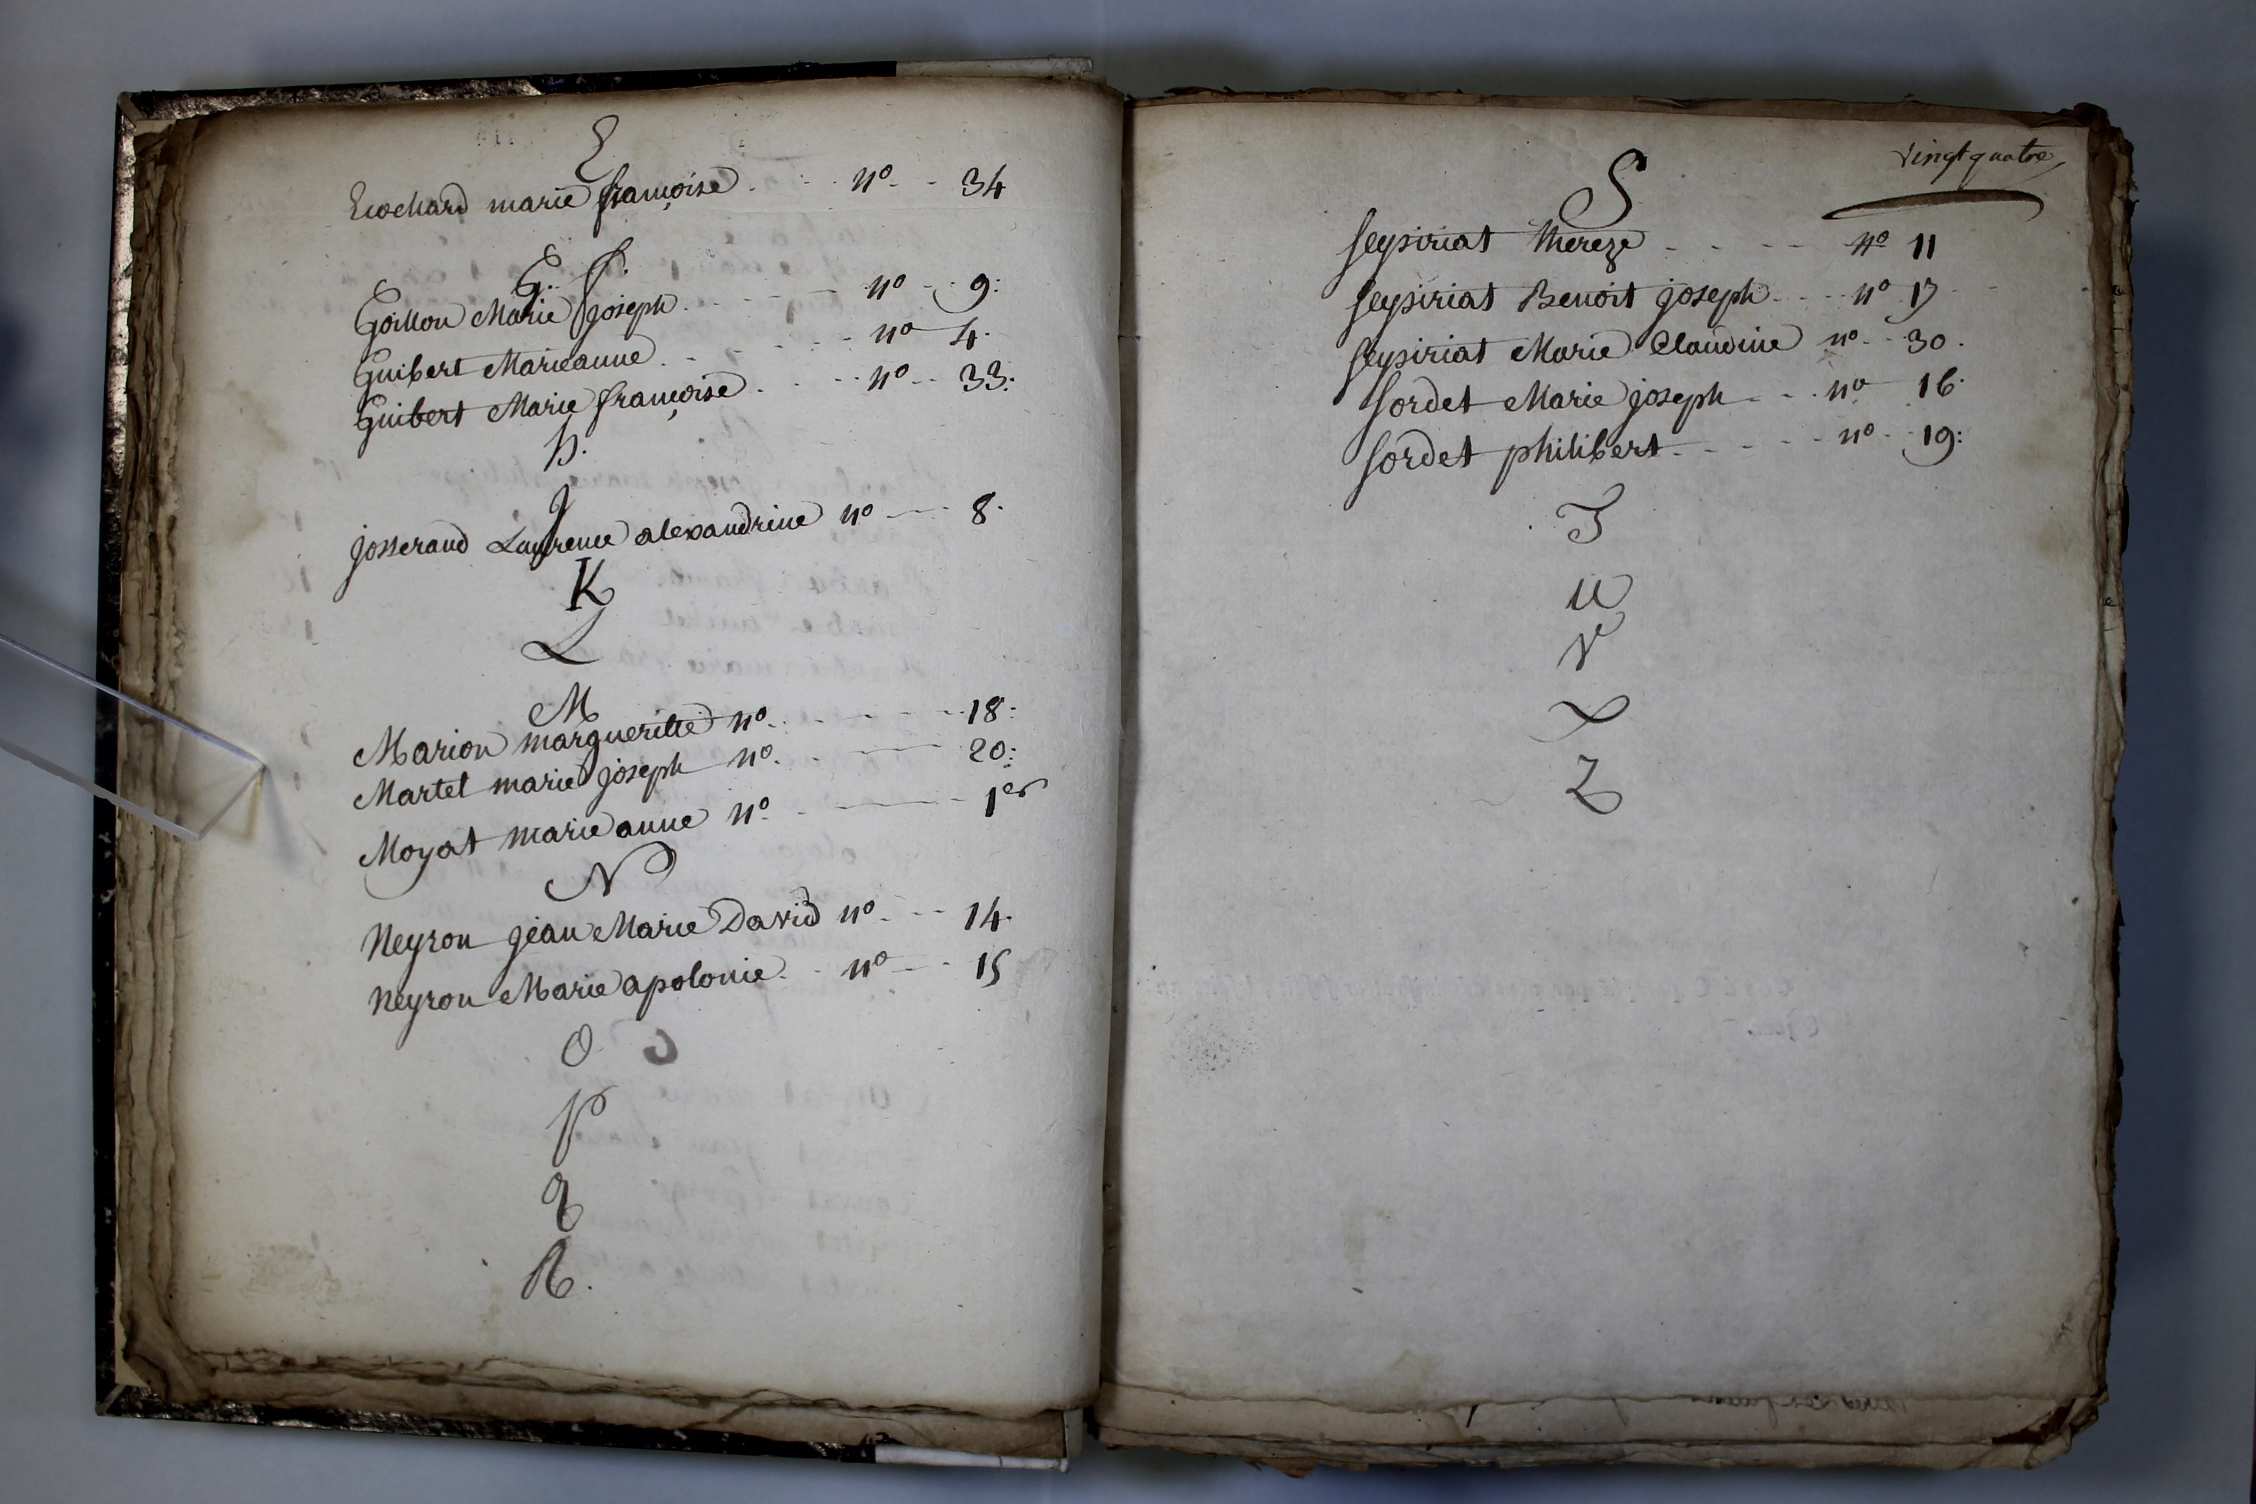 E
Ecochard marie françoise nº 34
G. f.
Goillon Marie joseph nº 9:
Guibert Marieanne nº 4.
Guibert Marie françoise nº 33:
h.
J
josserand Laurence alexandrine nº 8.
K
L
M
Marion margueritte nº 18:
Martel marie joseph nº 20:
Moyat marie anne nº 1er
N
Neyron jean Marie David nº 14.
Neyron Marie apolonie nº 15
O
P
Q
R.
vingt quatre
S
Seysiriat thereze nº 11
Seysiriat Benoit joseph nº 17
Seysiriat Marie Claudine nº 30.
Sordet Marie joseph nº 16.
Sordet philibert nº 19:
T
U
V
X
Z